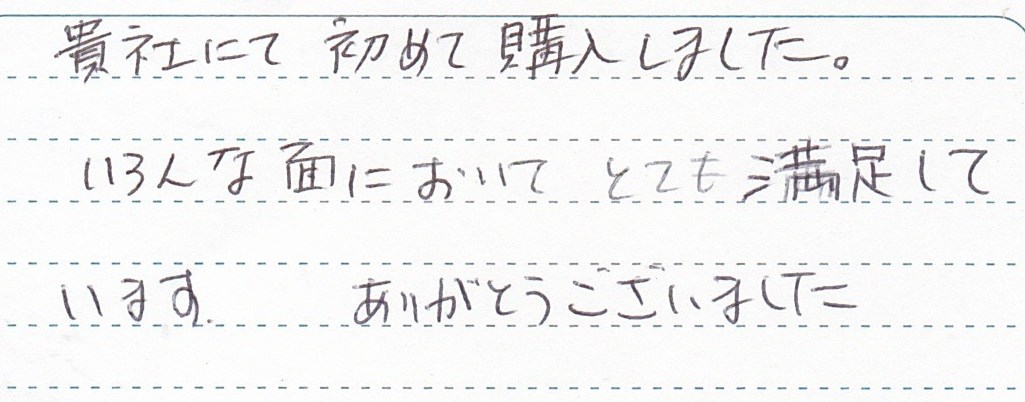 貴社にて 初めて購入しました。
いろんな面において とても満足して
います. ありがとうございました